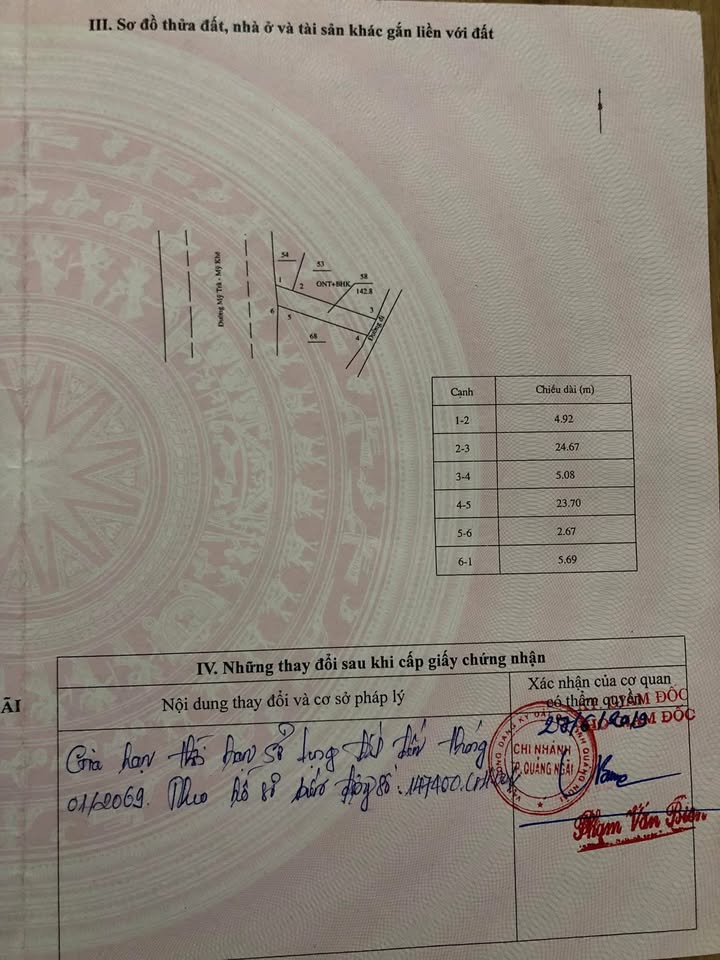 III. Sơ đồ thửa đất, nhà ở và tài sản khác gắn liền với đất
Đường Mỹ Trà - Mỹ Khê
54
53
58
ONT+BHK
142.8
1
2
3
6
5
4
68
Đường đi
Cạnh Chiều dài (m)
1-2 4.92
2-3 24.67
3-4 5.08
4-5 23.70
5-6 2.67
6-1 5.69
IV. Những thay đổi sau khi cấp giấy chứng nhận
Nội dung thay đổi và cơ sở pháp lý
Xác nhận của cơ quan
có thẩm quyền
ÃI
Gia hạn thời hạn sử dụng đất đến tháng
01/2069. Theo hồ sơ biến động số: 147400.
GIÁM ĐỐC
GIÁM ĐỐC
CHI NHÁNH
TP. QUẢNG NGÃI
Phạm Văn Biên